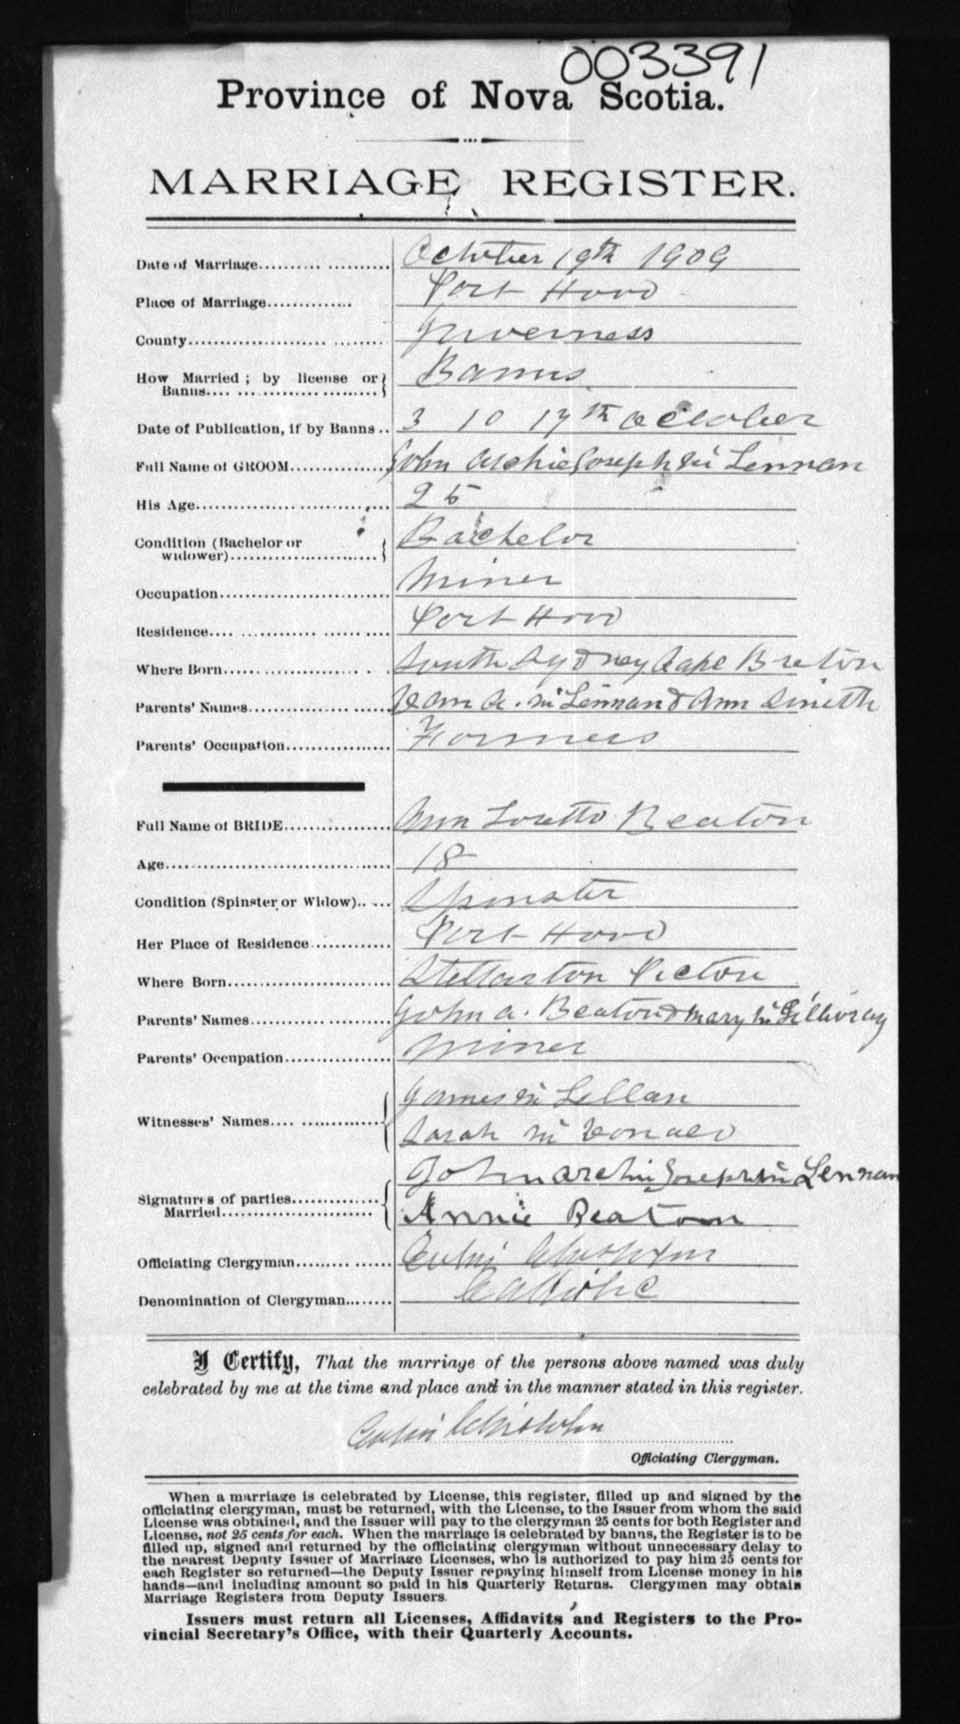 003391
Province of Nova Scotia.
MARRIAGE REGISTER.
Date of Marriage.................. October 19th 1909
Place of Marriage.............. Port Hood
County.................................. Inverness
How Married ; by license or Banns.................... Banns
Date of Publication, if by Banns .. 3 10 17th October
Full Name of GROOM................ John Archie Joseph Mc Lennan
His Age.................................. 25
Condition (Bachelor or widower)........................ Bachelor
Occupation............................ Miner
Residence.............................. Port Hood
Where Born............................ South Sydney Cape Breton
Parents' Names........................ A. Mc Lennan & Ann Smith
Parents' Occupation................ Farmers
Full Name of BRIDE................ Ann Loretto Beaton
Age...................................... 18
Condition (Spinster or Widow)...... Spinster
Her Place of Residence............ Port Hood
Where Born............................ Stellarton Pictou
Parents' Names........................ John A. Beaton & Mary Mc Gillivray
Parents' Occupation................ Miner
Witnesses' Names.................... James Mc Lellan
Sarah Mc Donald
Signatures of parties Married........................ John Archie Joseph Mc Lennan
Annie Beaton
Officiating Clergyman.............. Colin Chisholm
Denomination of Clergyman........ Catholic
I Certify, That the marriage of the persons above named was duly
celebrated by me at the time and place and in the manner stated in this register.
Colin Chisholm
Officiating Clergyman.
When a marriage is celebrated by License, this register, filled up and signed by the
officiating clergyman, must be returned, with the License, to the Issuer from whom the said
License was obtained, and the Issuer will pay to the clergyman 25 cents for both Register and
License, not 25 cents for each. When the marriage is celebrated by banns, the Register is to be
filled up, signed and returned by the officiating clergyman without unnecessary delay to
the nearest Deputy Issuer of Marriage Licenses, who is authorized to pay him 25 cents for
each Register so returned—the Deputy Issuer repaying himself from License money in his
hands—and including amount so paid in his Quarterly Returns. Clergymen may obtain
Marriage Registers from Deputy Issuers.
Issuers must return all Licenses, Affidavits and Registers to the Pro-
vincial Secretary's Office, with their Quarterly Accounts.